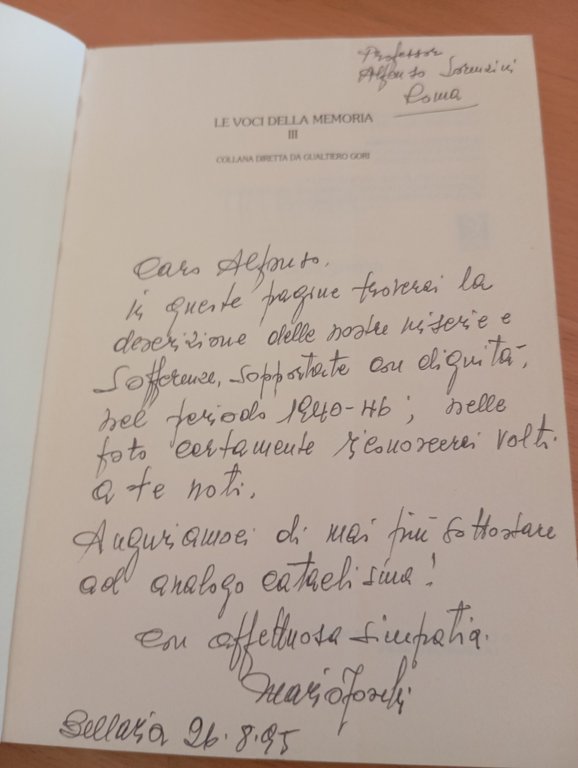 Professor
Alfonso Lorenzini
Roma
LE VOCI DELLA MEMORIA
III
COLLANA DIRETTA DA GUALTIERO GORI
Caro Alfonso,
in queste pagine troverai la
descrizione delle nostre miserie e
sofferenze, sopportate con dignità,
nel periodo 1940-46; nelle
foto certamente riconoscerai volti
a te noti.
Auguriamoci di mai più sottostare
ad analogo cataclisma!
con affettuosa simpatia.
Mario
Bellaria 26.8.95